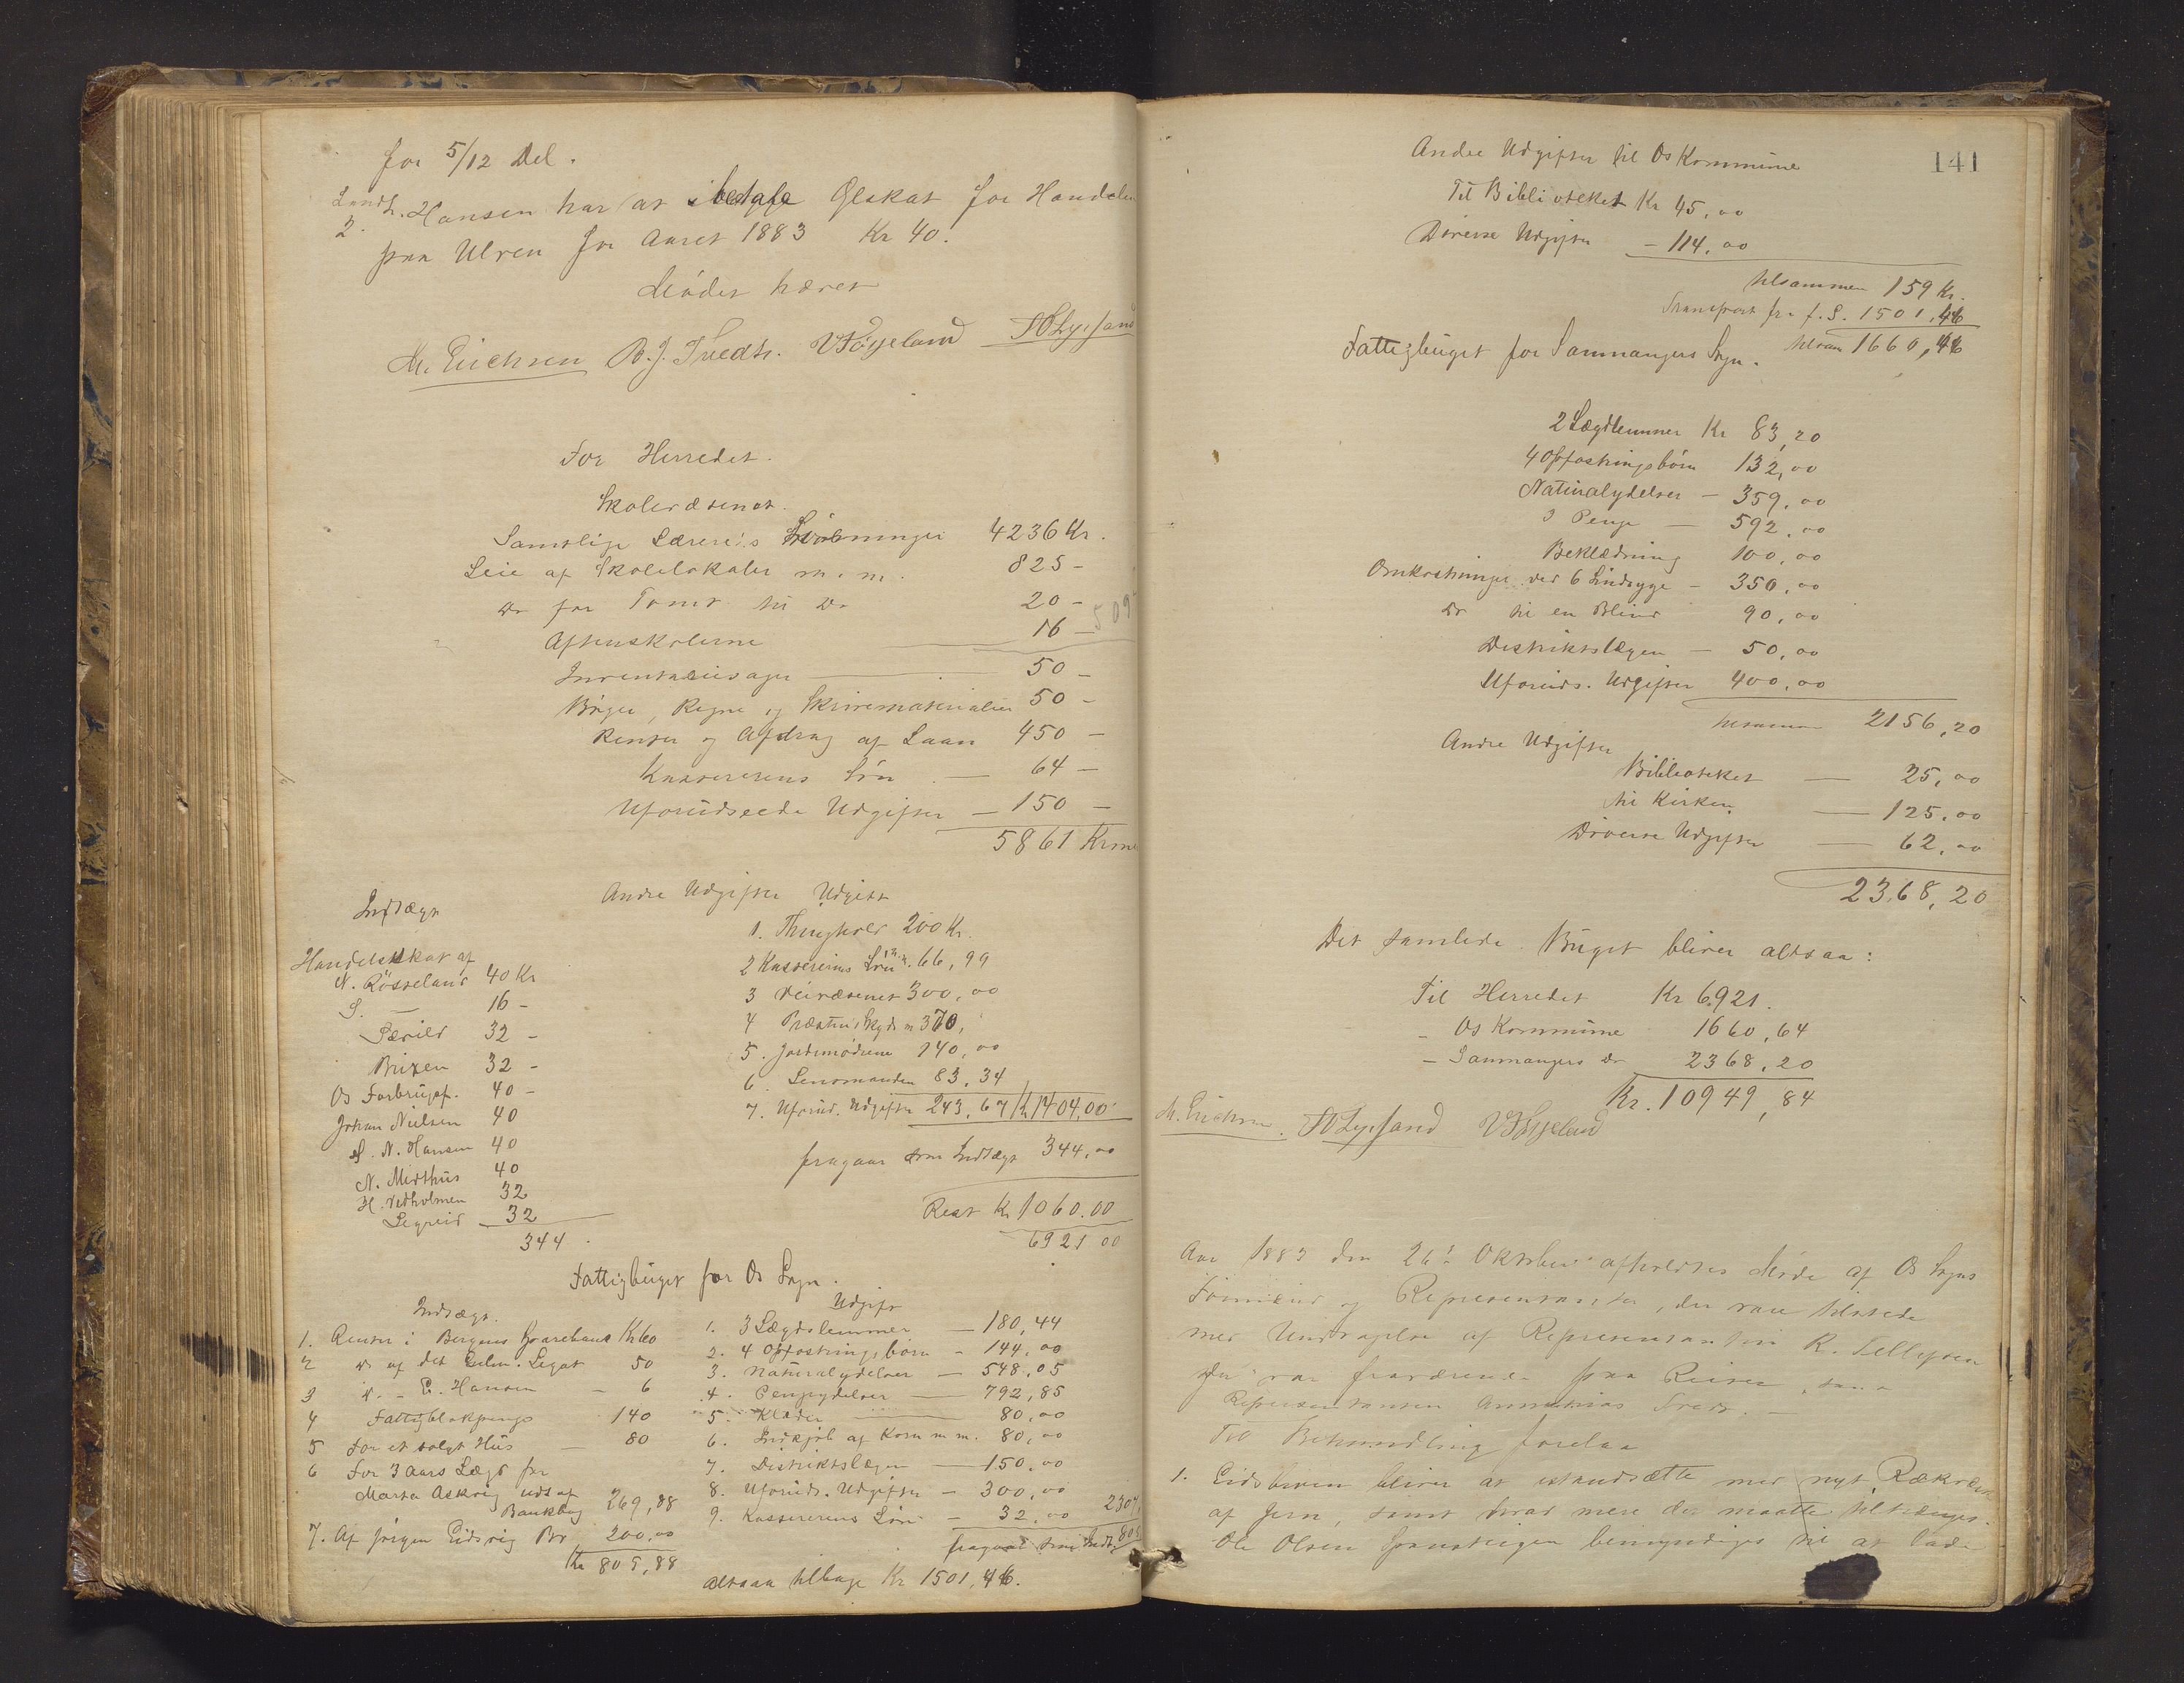 for 5/12 Del.
Landh. Hansen har at betale Ølskat for Handelen
2. paa Ulven for Aaret 1883 Kr 40.
Mödet hævet
M. Erichsen B. J. Tvedt. V Töyeland
For Herredet.
Skolevæsenet.
Samtlige Lærere's Lönninger 4236 Kr.
Leie af Skolelokaler m. m. 825 -
Do for Tomt til Do 20 -
Aftenskolerne 16 -
Inventariesager 50 -
Böger, Regne og Skrivematerialier 50 -
Renter og Afdrag af Laan 450 -
Kassererens Lön - 64 -
Uforudseede Udgifter - 150 -
5861 Krone
Andre Udgifter
Indtægt
Handelsskat af
N. Rösseland 40 Kr
S. — 16 -
Særild 32 -
Brixen 32 -
Os Forbrugsf. 40 -
Johan Nielsen 40
S. N. Hansen 40
N. Midthus 40
H. Vedholmen 32
Legreid 32
344
Udgift
1. Thinghold 200 Kr.
2 Kassererens Lön m. m. 66,99
3 Veivæsenet 300,00
4 Præsten's Skyds m 370,
5. Jordemödrene 140,00
6. Lensmanden 83,34
7. Uforud. Udgifter 243,67 Kr 1404,00
fragaar som Indtægt 344,00
Rest Kr 1060.00
6921 00
Fattigbuget for Os Sogn.
Indtægt.
1. Renter i Bergens Sparebank Kr 60
2 Do af det Legat 50
3 Do - E. Hansen - 6
4 Fattigblokpenge 140
5 For et solgt Hus - 80
6 For 3 Aars Lægd for
Marta Askvig uds af
Bankbog 269,88
7. Af Jörgen Eidsvig Br 200,00
Kr 805,88
Udgift
1. 3 Lægdslemmer - 180,44
2. 4 Opfostringsbörn - 144,00
3. Naturalydelser - 548,05
4. Pengeydelser - 792,85
5. Klæder 80,00
6. Indkjöb af Korn m m. 80,00
7. Distriktslægen - 150,00
8. Uforuds. Udgifter - 300,00
9. Kassererens Lön - 32,00
fragaar som Indt.
Altsaa tilbage Kr 1501,46.
141
Andre Udgifter til Os Kommune
Til Biblioteket Kr 45,00
Diverse Udgifter - 114,00
tilsammen 159 Kr.
Transport fra f. S. 1501,46
tilsam 1660,46
Fattigbuget for Samnangers Sogn.
2 Lægdlemmer Kr 83,20
4 Opfostringsbörn 132,00
Naturalydelser - 359,00
I Penge - 592,00
Beklædning 100,00
Omkostninger ved 6 Sindsyge - 350,00
Do til en Blind 90,00
Distriktslægen - 50,00
Uforuds. Udgifter 400,00
tilsammen 2156,20
Andre Udgifter
Biblioteket - 25,00
til Kirken - 125,00
Diverse Udgifter - 62,00
2368,20
Det samlede Buget bliver altsaa:
Til Herredet Kr 6921.
- Os Kommune 1660,64
- Samnangers Do 2368,20
Kr. 10949,84
M. Erichsen. V Töyeland
Aar 1883 den 26de Oktober afholdtes Möde af Os Sogns
Formænd og Repræsentanter, der vare tilstede
med Undtagelse af Repræsentanten R. Tellefsen
der var fraværende paa Reiser, samt
Repræsentanten Ananias Tvedt. -
Til Behandling forelaa
1. Eidsbroen bliver at istandsætte med nyt Rækværk
af Jern, samt hvad mere der maatte tiltrænges.
Ole Olsen bemyndiges til at lade